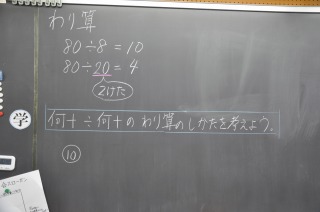 わり算
80÷8=10
80÷20=4
2けた
学
何十÷何十のわり算のしかたを考えよう。
⑩